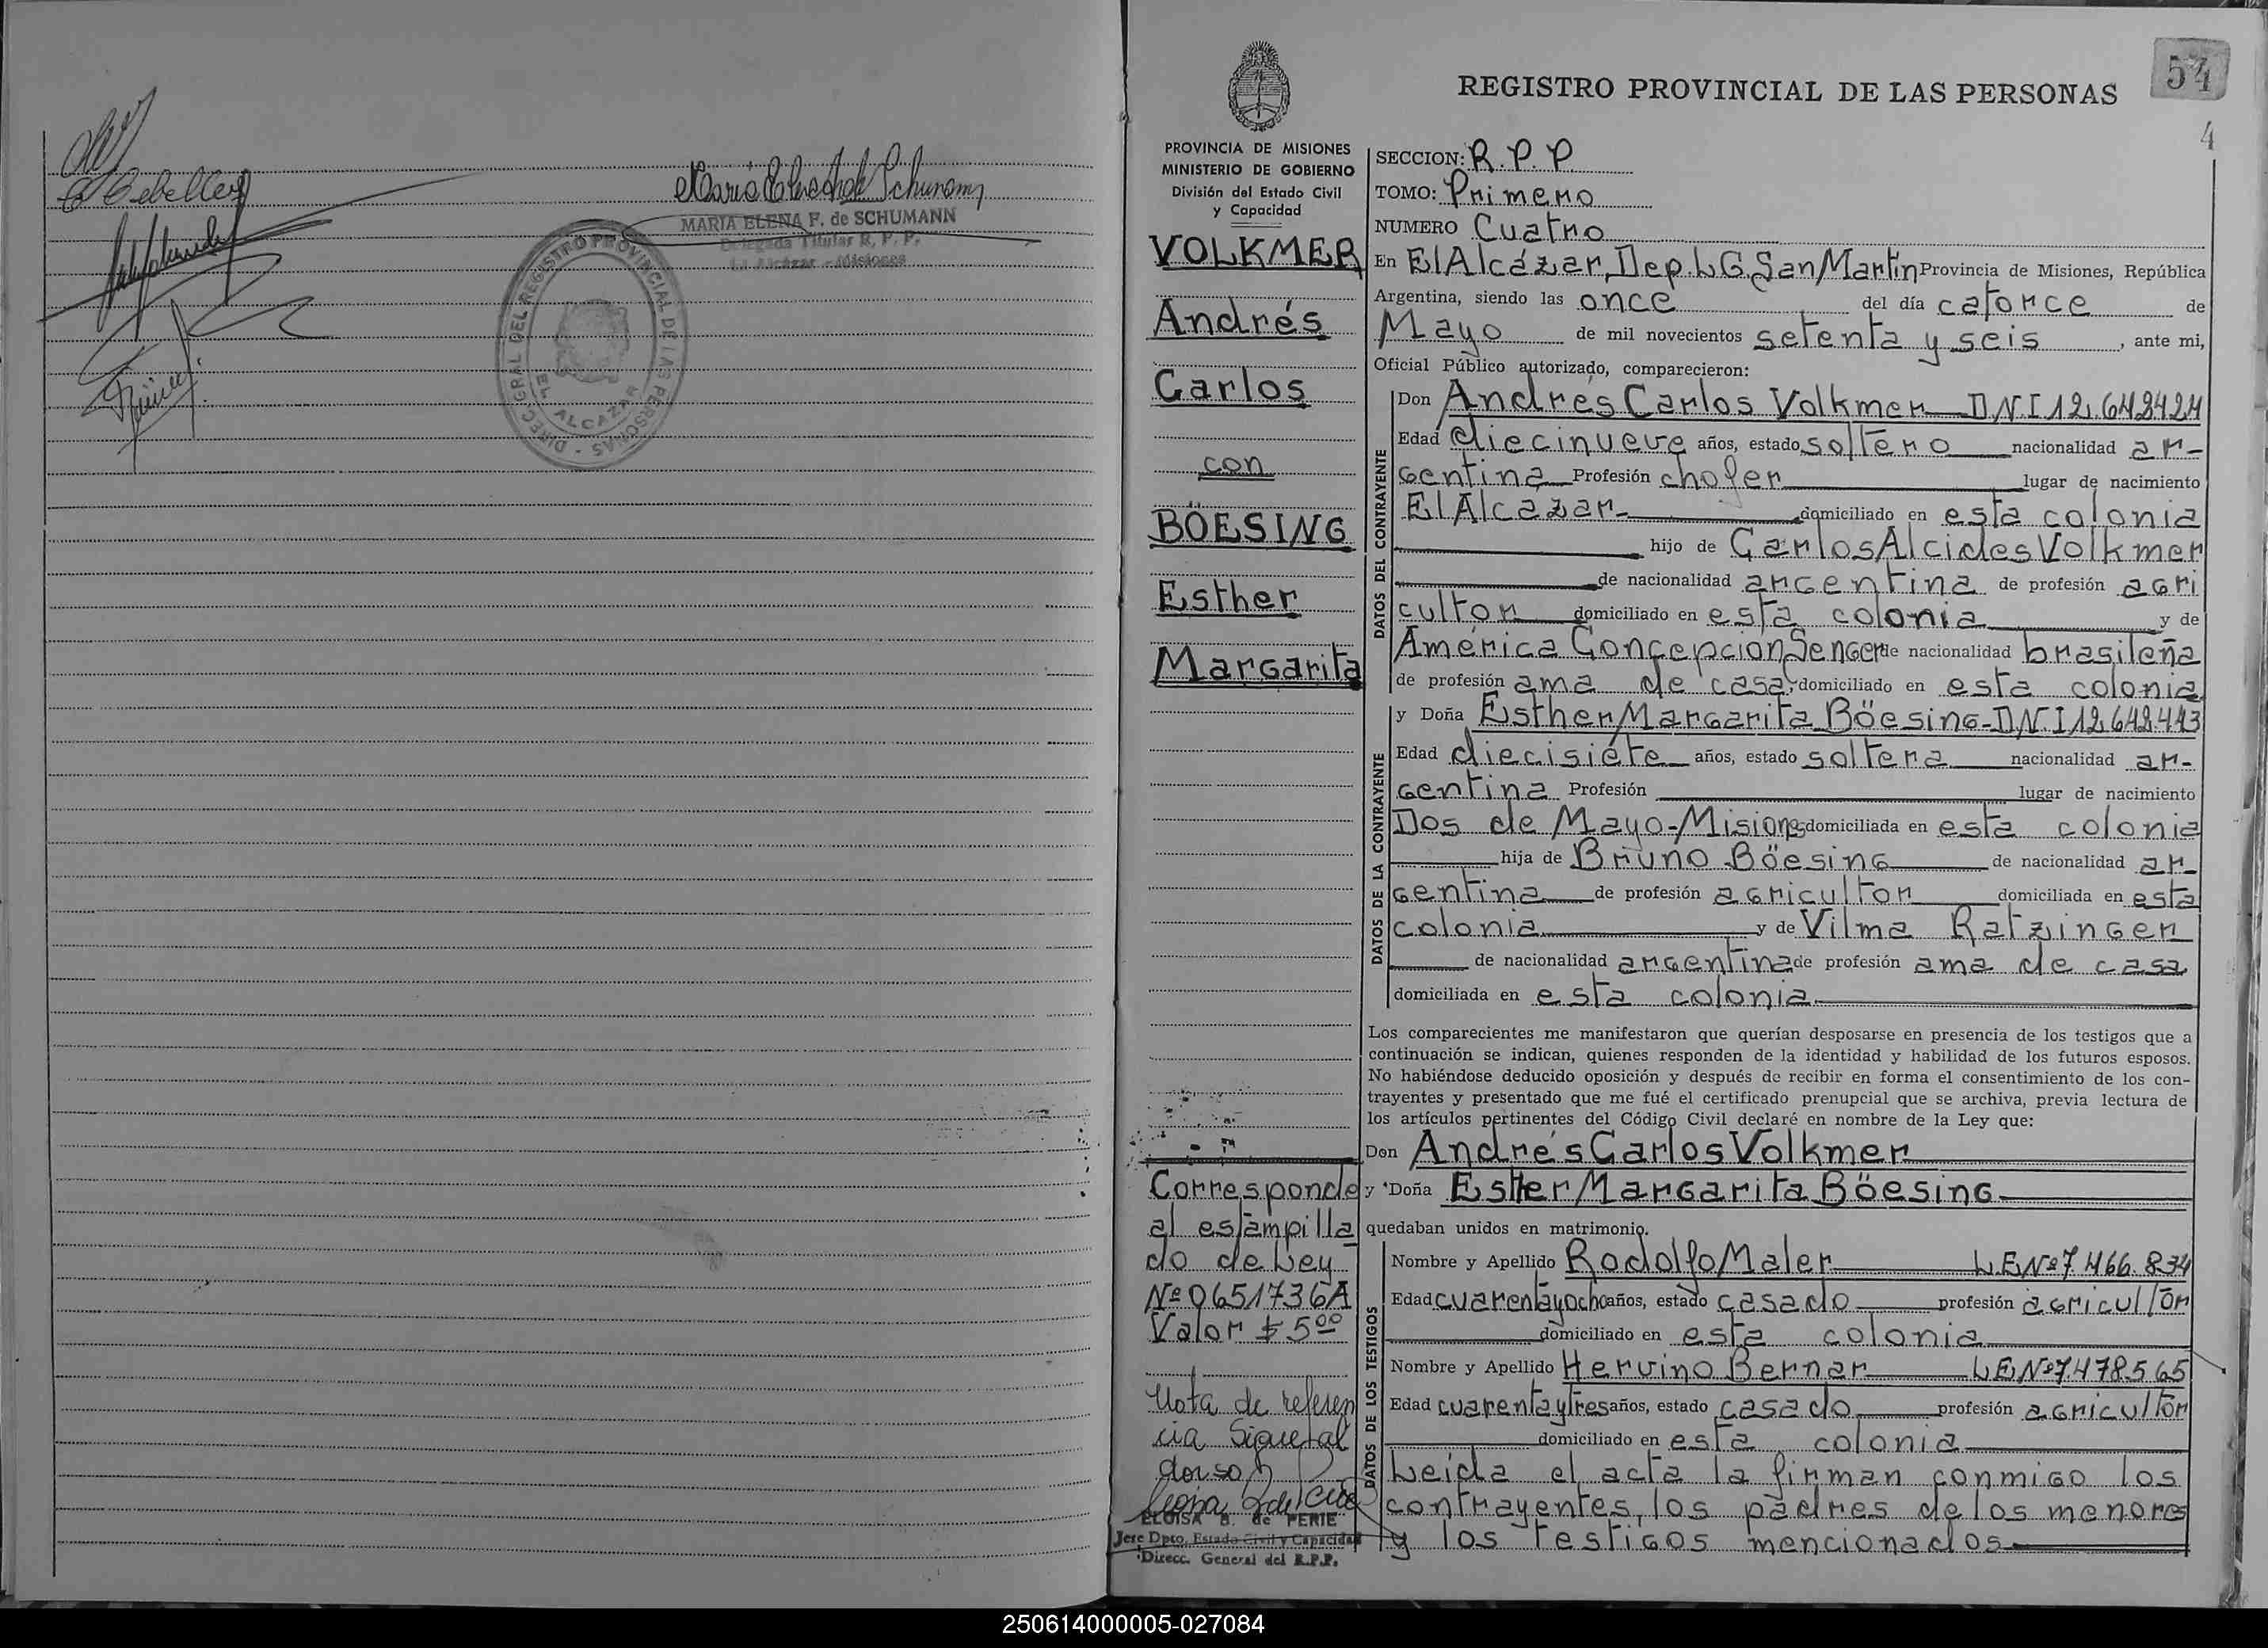 Maria Elena F de Schumann
MARIA ELENA F. de SCHUMANN
Delegada Titular R. P. P.
El Alcázar - Misiones
DIREC. GRAL DEL REGISTRO PROVINCIAL DE LAS PERSONAS
EL ALCAZAR
54
REGISTRO PROVINCIAL DE LAS PERSONAS
4
PROVINCIA DE MISIONES
MINISTERIO DE GOBIERNO
División del Estado Civil
y Capacidad
VOLKMER
Andrés
Carlos
con
BÖESING
Esther
Margarita
Corresponde
al estampilla
do de Ley
Nº 0651736A
Valor $ 500
Nota de referen
cia Sigue al
dorso
ELOISA B. de PERIE
Jefe Dpto. Estado Civil y Capacidad
Direcc. General del R.P.P.
SECCION: R.P.P.
TOMO: Primero
NUMERO Cuatro
En El Alcázar, Dep. L.G. San Martin Provincia de Misiones, República
Argentina, siendo las once del día catorce de
Mayo de mil novecientos setenta y seis, ante mi,
Oficial Público autorizado, comparecieron:
DATOS DEL CONTRAYENTE
Don Andrés Carlos Volkmer D.N.I 12.642424
Edad diecinueve años, estado soltero nacionalidad ar-
gentina Profesión chofer lugar de nacimiento
El Alcázar- domiciliado en esta colonia
hijo de Carlos Alcides Volkmer
de nacionalidad argentina de profesión agri
cultor domiciliado en esta colonia y de
América Concepción Senger de nacionalidad brasileña
de profesión ama de casa, domiciliado en esta colonia
DATOS DE LA CONTRAYENTE
y Doña Esther Margarita Böesing- D.N.I 12.642.443
Edad diecisiéte años, estado soltera nacionalidad ar-
gentina Profesión lugar de nacimiento
Dos de Mayo-Misiones domiciliada en esta colonia
hija de Bruno Böesing de nacionalidad ar
gentina de profesión agricultor domiciliada en esta
colonia y de Vilma Ratzinger
de nacionalidad argentina de profesión ama de casa
domiciliada en esta colonia
Los comparecientes me manifestaron que querían desposarse en presencia de los testigos que a
continuación se indican, quienes responden de la identidad y habilidad de los futuros esposos.
No habiéndose deducido oposición y después de recibir en forma el consentimiento de los con-
trayentes y presentado que me fué el certificado prenupcial que se archiva, previa lectura de
los artículos pertinentes del Código Civil declaré en nombre de la Ley que:
Don Andrés Carlos Volkmer
y Doña Esther Margarita Böesing
quedaban unidos en matrimonio.
DATOS DE LOS TESTIGOS
Nombre y Apellido Rodolfo Maler L.E Nº 7.466.834
Edad cuarentayocho años, estado casado profesión agricultor
domiciliado en esta colonia
Nombre y Apellido Hervino Bernar L.E Nº 7.478565
Edad cuarentaytres años, estado casado profesión agricultor
domiciliado en esta colonia
Leida el acta la firman conmigo los
contrayentes, los padres de los menores
y los testigos mencionados
250614000005-027084